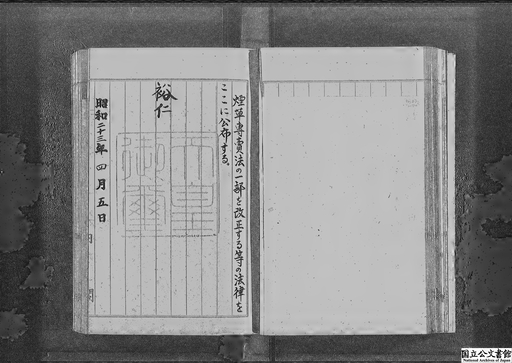 煙草専賣法の一部を改正する等の法律を
ここに公布する。
裕仁
天皇御璽
昭和二十三年四月五日
国立公文書館
National Archives of Japan